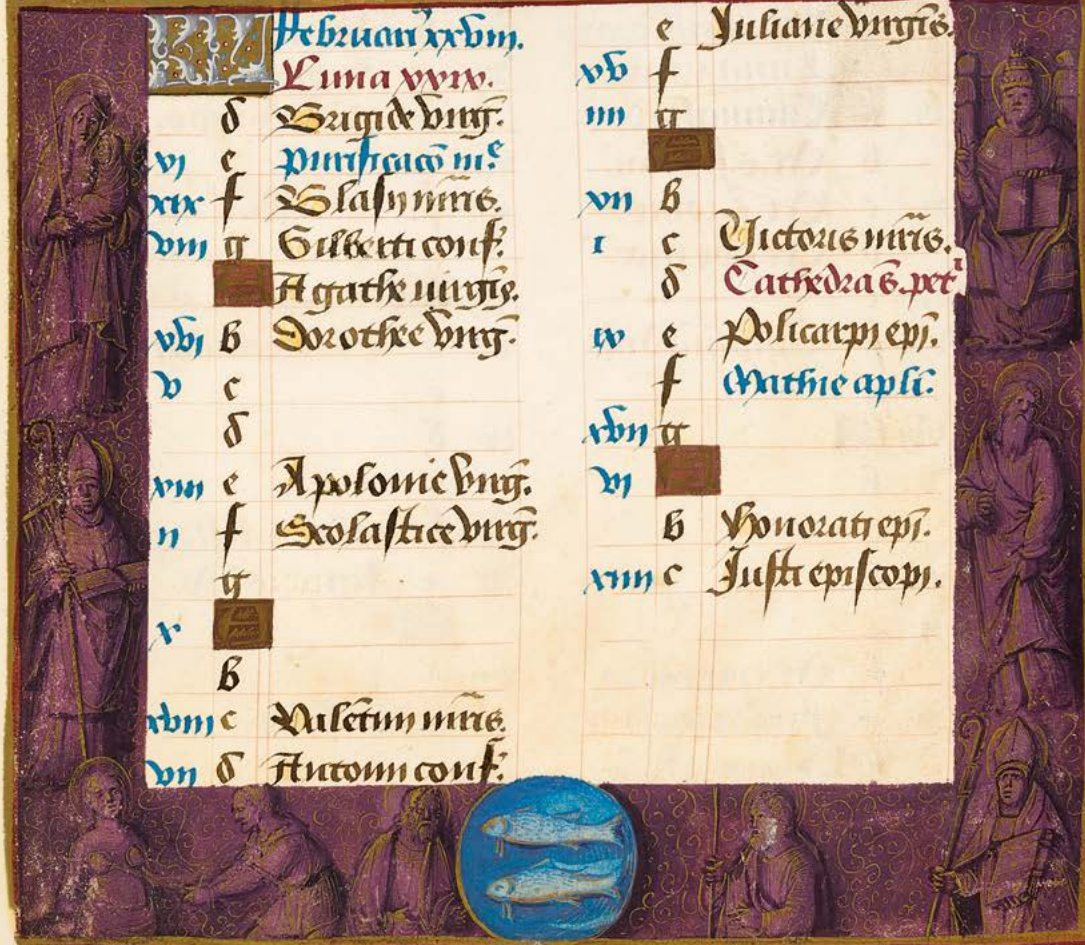 kl Februarī xxviii.
Luna xxix.
d Brigide virḡ.
vi e Purificacō m^e
xix f Blasii mr̄is.
viii g Gilberti conf.
A Agathe uirgīs.
xvi b Dorothee virḡ.
v c
d
xiii e Apolonie virḡ.
ii f Scolastice virḡ.
g
x A
b
xviii c Valētini mr̄is.
vii d Antonii conf.
e Juliane virgīs.
xv f
iiii g
A
xii b
i c Victoris mr̄is.
d Cathedra s. pet^i
ix e Policarpi epī.
f Mathie aplī.
xvii g
vi A
b Honorati epī.
xiiii c Justi episcopi.